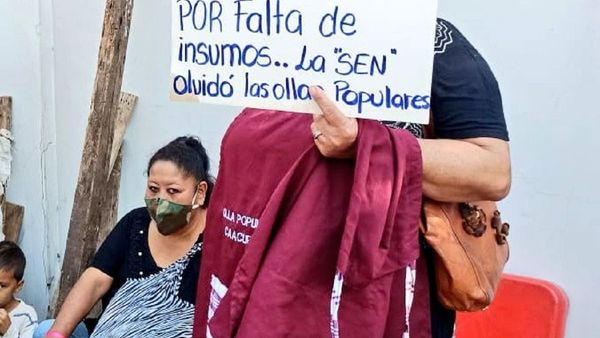 POR Falta de
insumos.. La "SEN"
olvidó las ollas Populares
OLLA POPUL
CAACU